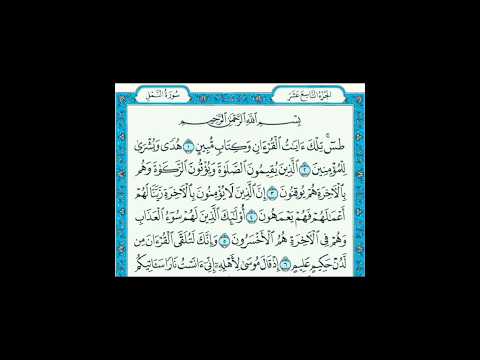 الجزء التاسع عشر
سورة النمل
بِسْمِ اللَّهِ الرَّحْمَٰنِ الرَّحِيمِ
طسٓ ۚ تِلْكَ ءَايَٰتُ الْقُرْءَانِ وَكِتَابٍ مُّبِينٍ ١ هُدًى وَبُشْرَىٰ
لِلْمُؤْمِنِينَ ٢ الَّذِينَ يُقِيمُونَ الصَّلَوٰةَ وَيُؤْتُونَ الزَّكَوٰةَ وَهُم
بِالْءَاخِرَةِ هُمْ يُوقِنُونَ ٣ إِنَّ الَّذِينَ لَا يُؤْمِنُونَ بِالْءَاخِرَةِ زَيَّنَّا لَهُمْ
أَعْمَٰلَهُمْ فَهُمْ يَعْمَهُونَ ٤ أُو۟لَٰٓئِكَ الَّذِينَ لَهُمْ سُوٓءُ الْعَذَابِ
وَهُمْ فِي الْءَاخِرَةِ هُمُ الْأَخْسَرُونَ ٥ وَإِنَّكَ لَتُلَقَّى الْقُرْءَانَ مِن
لَّدُنْ حَكِيمٍ عَلِيمٍ ٦ إِذْ قَالَ مُوسَىٰ لِأَهْلِهِۦٓ إِنِّيٓ ءَانَسْتُ نَارًا سَـَٔاتِيكُم